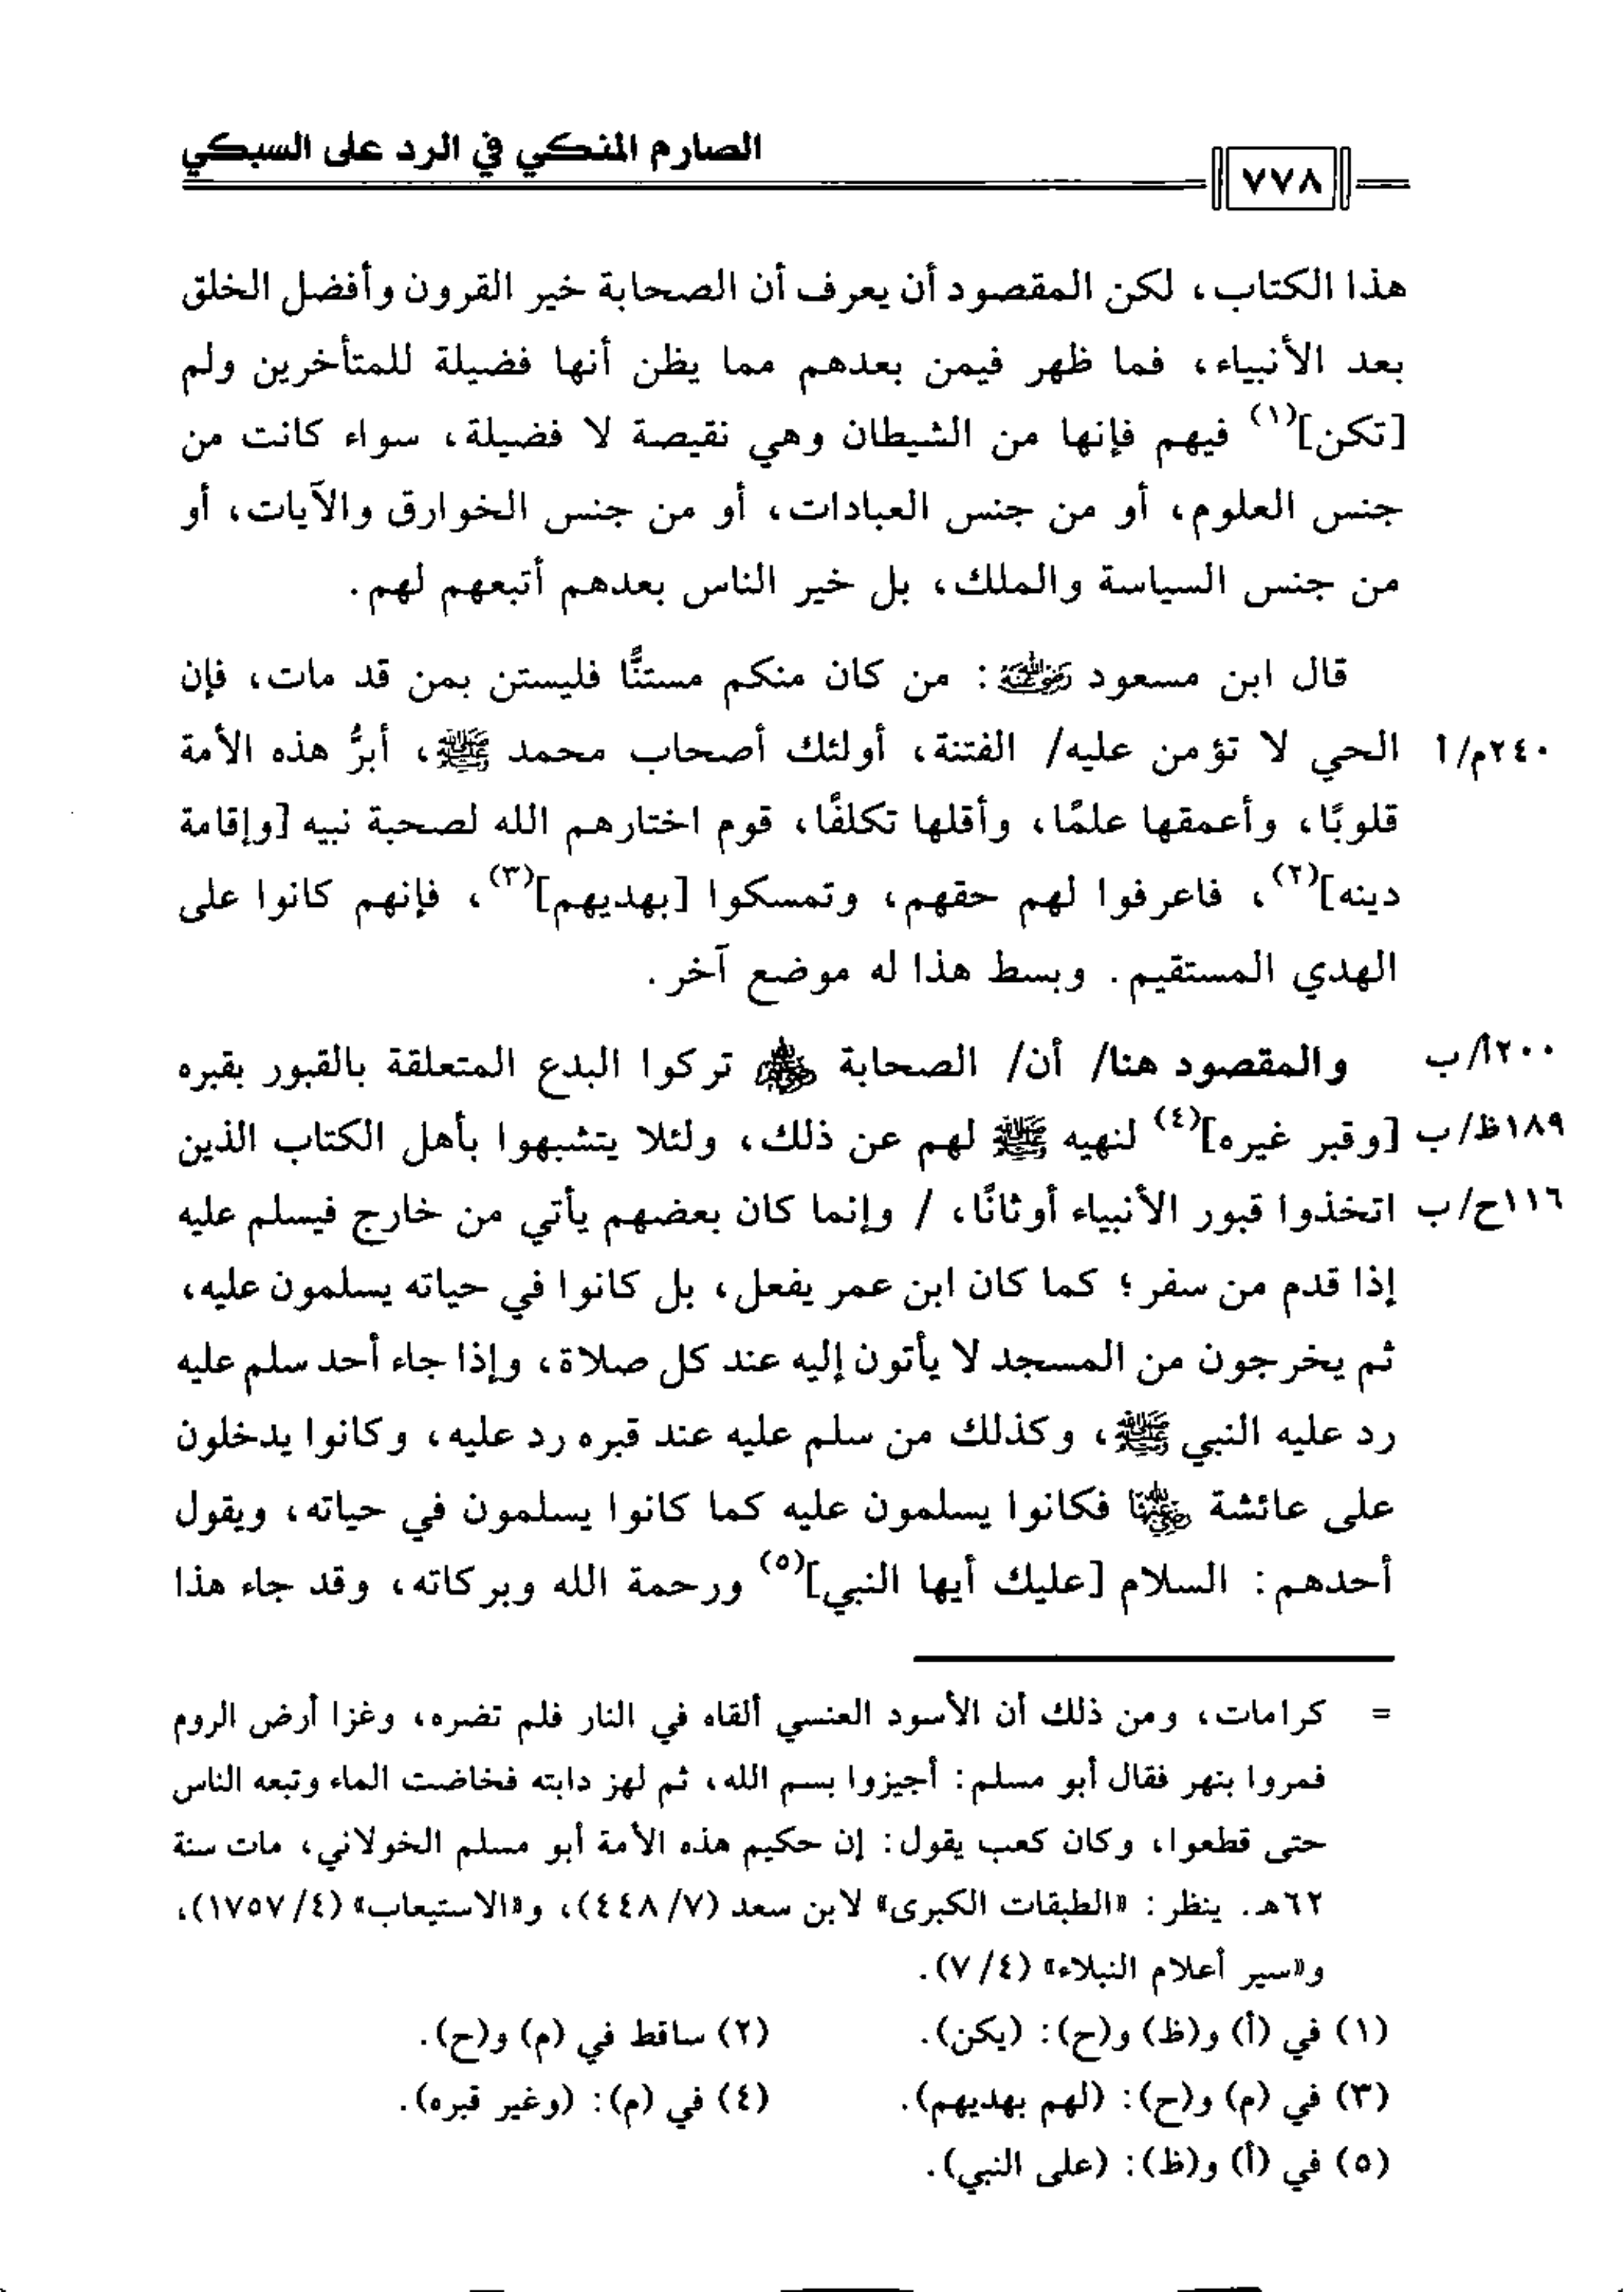 الصارم المنكي في الرد على السبكي
٧٧٨
هذا الكتاب، لكن المقصود أن يعرف أن الصحابة خير القرون وأفضل الخلق
بعد الأنبياء، فما ظهر فيمن بعدهم مما يظن أنها فضيلة للمتأخرين ولم
[تكن](١) فيهم فإنها من الشيطان وهي نقيصة لا فضيلة، سواء كانت من
جنس العلوم، أو من جنس العبادات، أو من جنس الخوارق والآيات، أو
من جنس السياسة والملك، بل خير الناس بعدهم أتبعهم لهم.
قال ابن مسعود رضي الله عنه: من كان منكم مستنًّا فليستن بمن قد مات، فإن
٢٤٠م/أ الحي لا تؤمن عليه/ الفتنة، أولئك أصحاب محمد ﷺ، أبرُّ هذه الأمة
قلوبًا، وأعمقها علمًا، وأقلها تكلفًا، قوم اختارهم الله لصحبة نبيه [وإقامة
دينه](٢)، فاعرفوا لهم حقهم، وتمسكوا [بهديهم](٣)، فإنهم كانوا على
الهدي المستقيم. وبسط هذا له موضع آخر.
٢٠٠أ/ب والمقصود هنا/ أن/ الصحابة رضي الله عنهم تركوا البدع المتعلقة بالقبور بقبره
١٨٩ظ/ب [وقبر غيره](٤) لنهيه ﷺ لهم عن ذلك، ولئلا يتشبهوا بأهل الكتاب الذين
١١٦ح/ب اتخذوا قبور الأنبياء أوثانًا، / وإنما كان بعضهم يأتي من خارج فيسلم عليه
إذا قدم من سفر؛ كما كان ابن عمر يفعل، بل كانوا في حياته يسلمون عليه،
ثم يخرجون من المسجد لا يأتون إليه عند كل صلاة، وإذا جاء أحد سلم عليه
رد عليه النبي ﷺ، وكذلك من سلم عليه عند قبره رد عليه، وكانوا يدخلون
على عائشة رضي الله عنها فكانوا يسلمون عليه كما كانوا يسلمون في حياته، ويقول
أحدهم: السلام [عليك أيها النبي](٥) ورحمة الله وبركاته، وقد جاء هذا
= كرامات، ومن ذلك أن الأسود العنسي ألقاه في النار فلم تضره، وغزا أرض الروم
فمروا بنهر فقال أبو مسلم: أجيزوا بسم الله، ثم لهز دابته فخاضت الماء وتبعه الناس
حتى قطعوا، وكان كعب يقول: إن حكيم هذه الأمة أبو مسلم الخولاني، مات سنة
٦٢هـ. ينظر: «الطبقات الكبرى» لابن سعد (٧/ ٤٤٨)، و«الاستيعاب» (٤/ ١٧٥٧)،
و«سير أعلام النبلاء» (٤/ ٧).
(١) في (أ) و(ظ) و(ح): (يكن). (٢) ساقط في (م) و(ح).
(٣) في (م) و(ح): (لهم بهديهم). (٤) في (م): (وغير قبره).
(٥) في (أ) و(ظ): (على النبي).